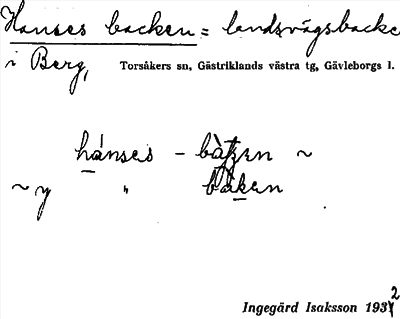 Hanses backen = landsvägsbacke
i Berg, Torsåkers sn, Gästriklands västra tg, Gävleborgs l.
hánses – bàtʃen ~
~ y " bàken
Ingegärd Isaksson 1932